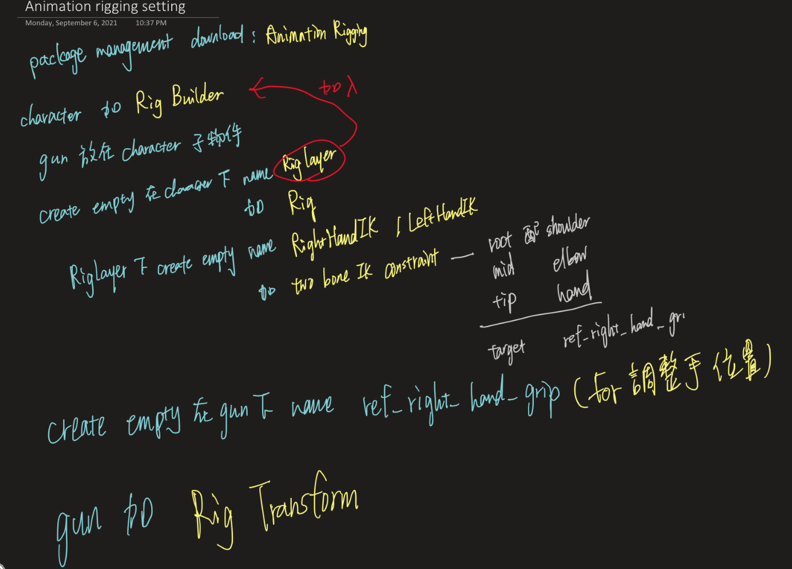 Animation rigging setting
Monday, September 6, 2021 10:37 PM
package management download : Animation Rigging
加入
character 加 Rig Builder
gun 放在 character 子物件
create empty 在 character 下 name RigLayer
加 Rig
RigLayer 下 create empty name RightHandIK / LeftHandIK
加 two bone IK constraint — root 配 shoulder
mid elbow
tip hand
target ref_right_hand_gri
create empty 在 gun 下 name ref_right_hand_grip (for 調整手位置)
gun 加 Rig Transform